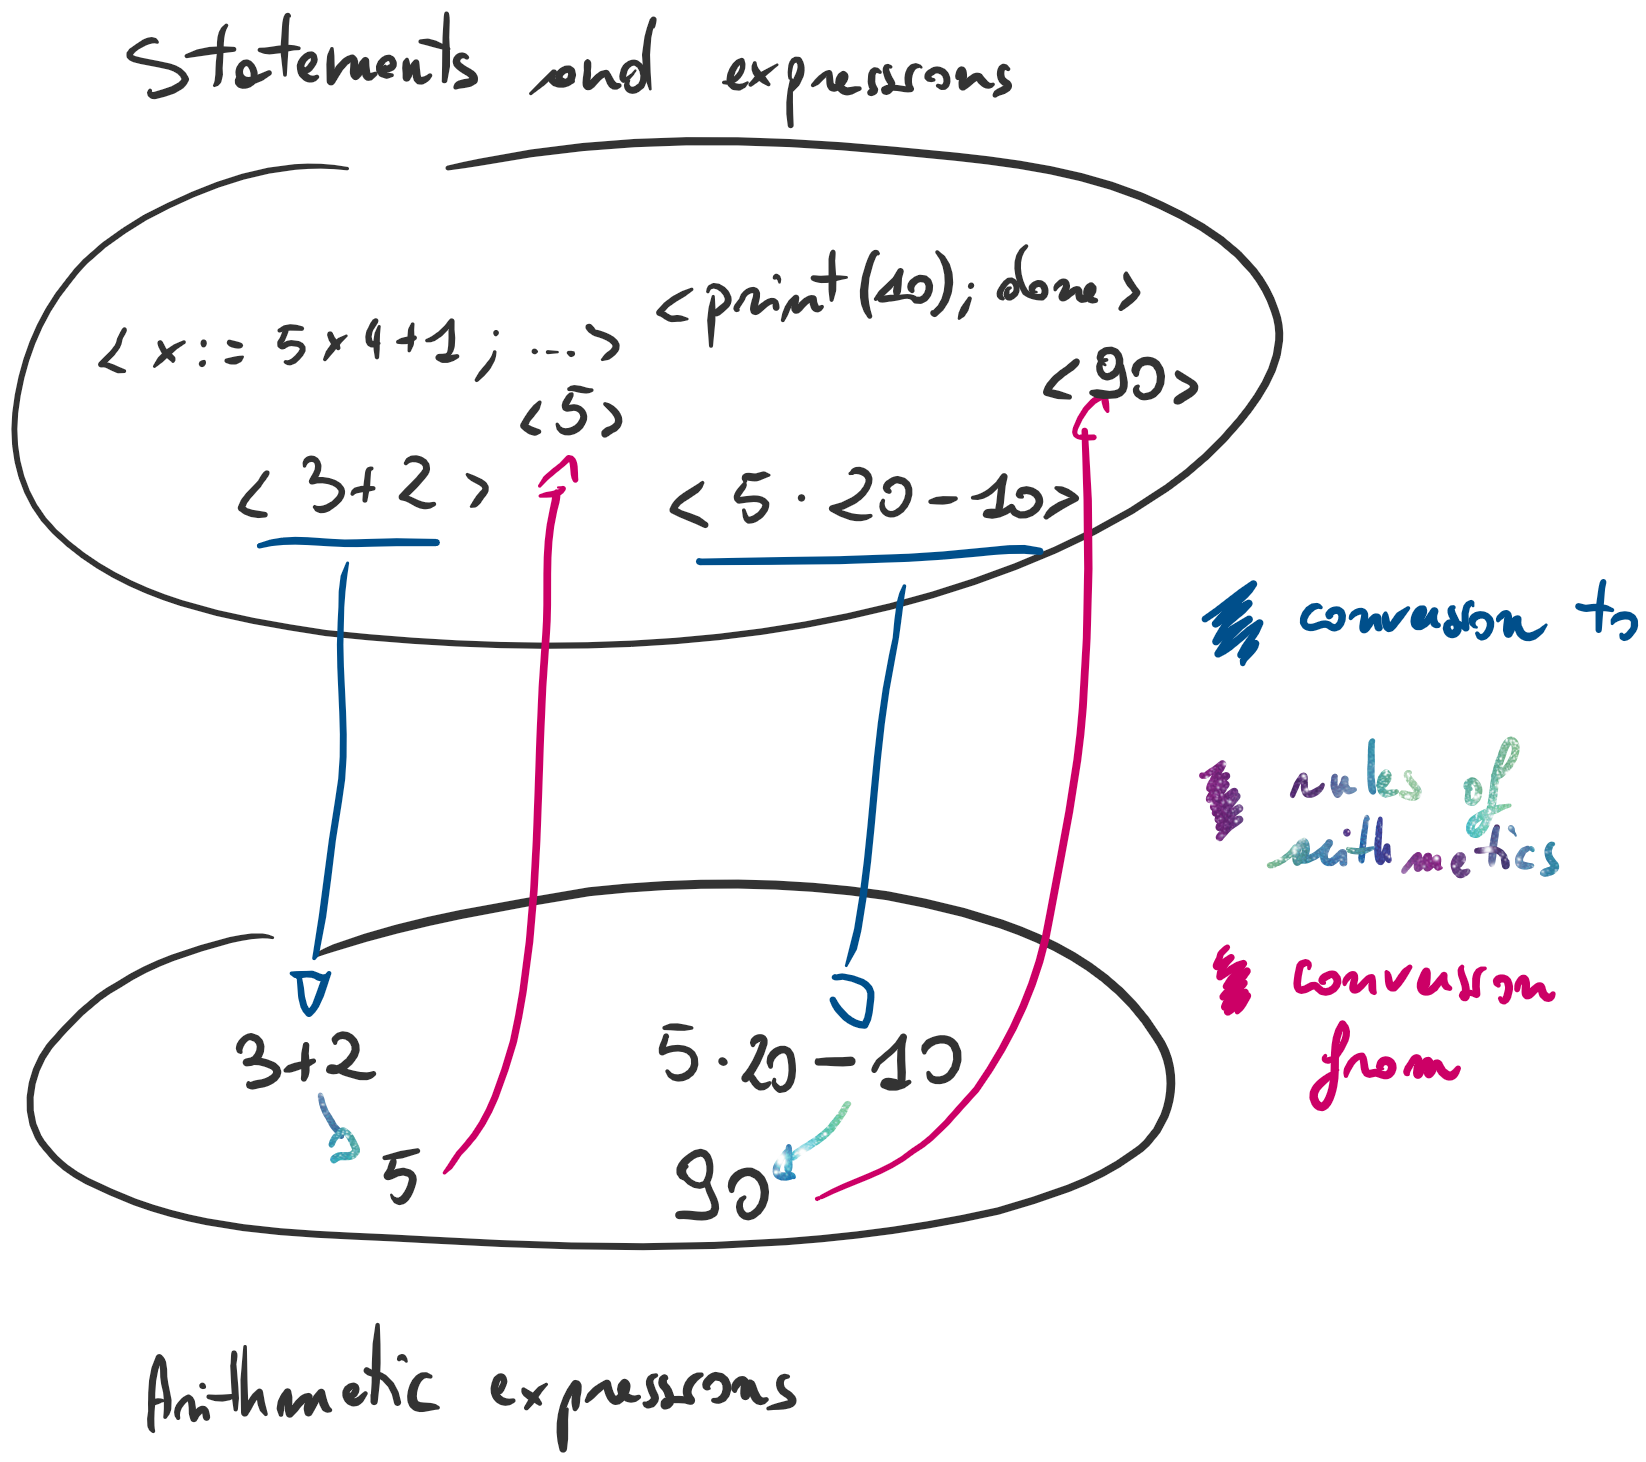 Statements and expressions
<print(10); done>
<x:= 5x4+1; ...>
<90>
<5>
<3+2>
<5·20-10>
conversion to
rules of
arithmetics
conversion
from
3+2
5·20-10
5
90
Arithmetic expressions